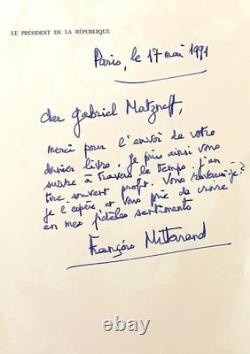 LE PRÉSIDENT DE LA RÉPUBLIQUE
Paris, le 17 mai 1991
cher Gabriel Matzneff,
merci pour l'envoi de votre
dernier livre. Je puis ainsi vous
suivre à travers le temps. J'en
tire souvent profit. Vous
je l'espère et vous prie de croire
en mes fidèles sentiments
François Mitterrand
ebay